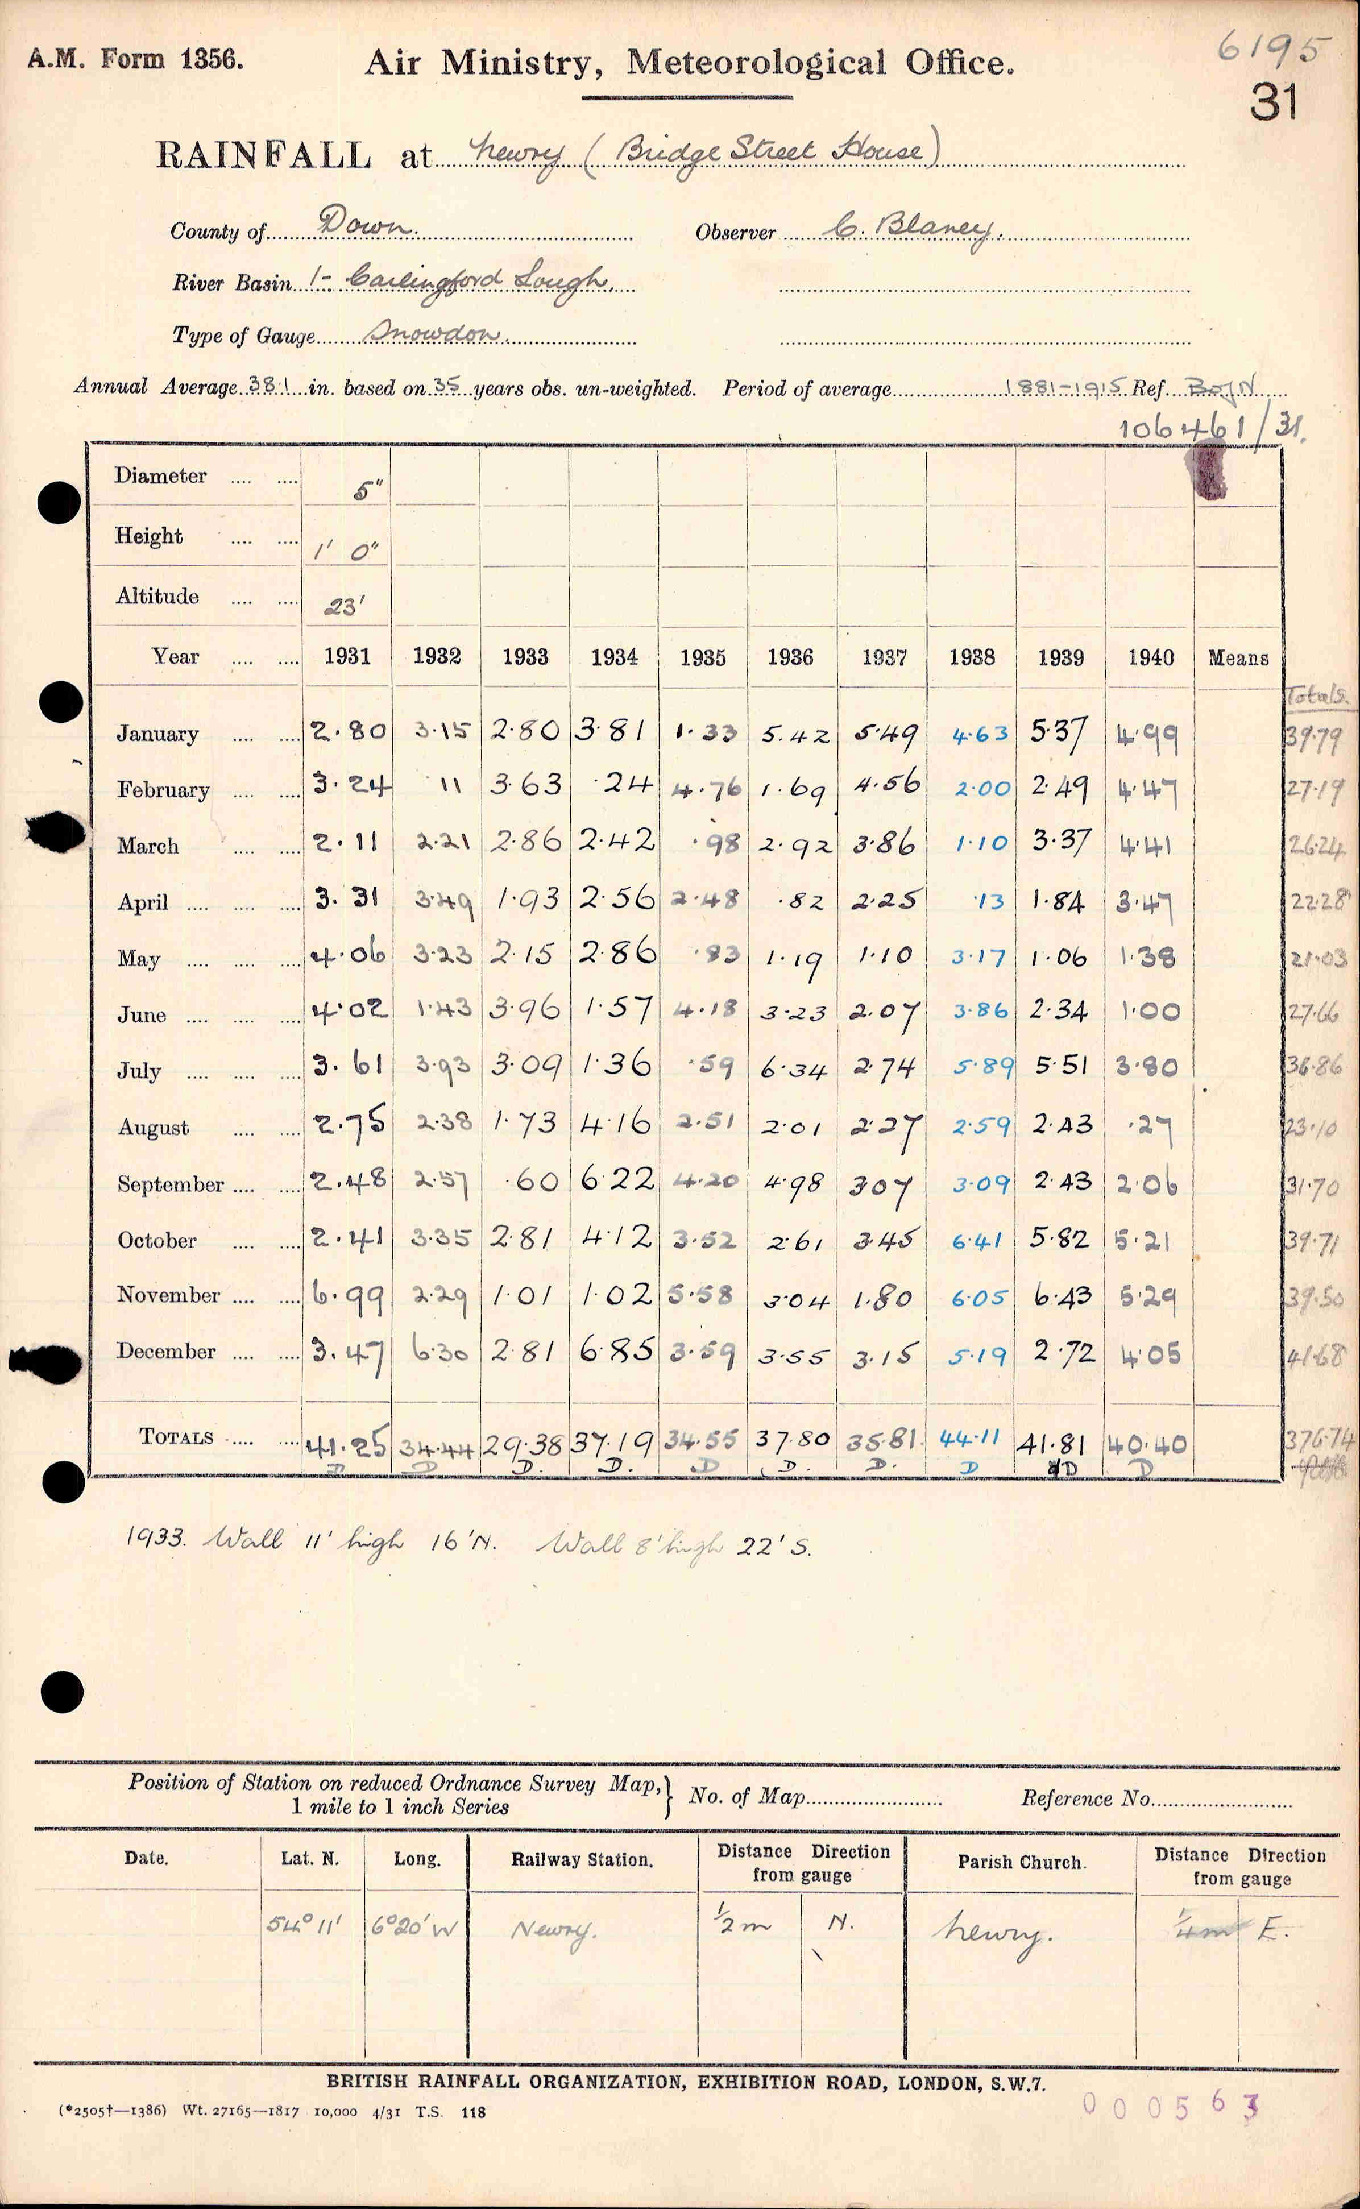 6195
A.M. Form 1356. Air Ministry, Meteorological Office.
31
RAINFALL at Newry (Bridge Street House)
County of Down. Observer C. Blaney.
River Basin 1- Carlingford Lough.
Type of Gauge Snowdon.
Annual Average 38.1 in. based on 35 years obs. un-weighted. Period of average 1881-1915 Ref.
106461/31.
Diameter 5"
Height 1' 0"
Altitude 23'
Year 1931 1932 1933 1934 1935 1936 1937 1938 1939 1940 Means
Totals.
January 2.80 3.15 2.80 3.81 1.33 5.42 5.49 4.63 5.37 4.99 39.79
February 3.24 11 3.63 .24 4.76 1.69 4.56 2.00 2.49 4.47 27.19
March 2.11 2.21 2.86 2.42 .98 2.92 3.86 1.10 3.37 4.41 26.24
April 3.31 3.49 1.93 2.56 2.48 .82 2.25 .13 1.84 3.47 22.28
May 4.06 3.23 2.15 2.86 .83 1.19 1.10 3.17 1.06 1.38 21.03
June 4.02 1.43 3.96 1.57 4.18 3.23 2.07 3.86 2.34 1.00 27.66
July 3.61 3.93 3.09 1.36 .59 6.34 2.74 5.89 5.51 3.80 36.86
August 2.75 2.38 1.73 4.16 2.51 2.01 2.27 2.59 2.43 .27 23.10
September 2.48 2.57 .60 6.22 4.20 4.98 3.07 3.09 2.43 2.06 31.70
October 2.41 3.35 2.81 4.12 3.52 2.61 3.45 6.41 5.82 5.21 39.71
November 6.99 2.29 1.01 1.02 5.58 3.04 1.80 6.05 6.43 5.29 39.50
December 3.47 6.30 2.81 6.85 3.59 3.55 3.15 5.19 2.72 4.05 41.68
TOTALS 41.25 34.44 29.38 37.19 34.55 37.80 35.81 44.11 41.81 40.40 376.74
D D D. D. D D. D. D D D
1933. Wall 11' high 16' N. Wall 8' high 22' S.
Position of Station on reduced Ordnance Survey Map,} No. of Map Reference No.
1 mile to 1 inch Series
Date. Lat. N. Long. Railway Station. Distance Direction from gauge Parish Church. Distance Direction from gauge
54° 11' 6° 20' W Newry. 1/2 m N. Newry. 1/4 m E.
BRITISH RAINFALL ORGANIZATION, EXHIBITION ROAD, LONDON, S.W.7.
(*2505†—1386) Wt. 27165—1817 10,000 4/31 T.S. 118
000563